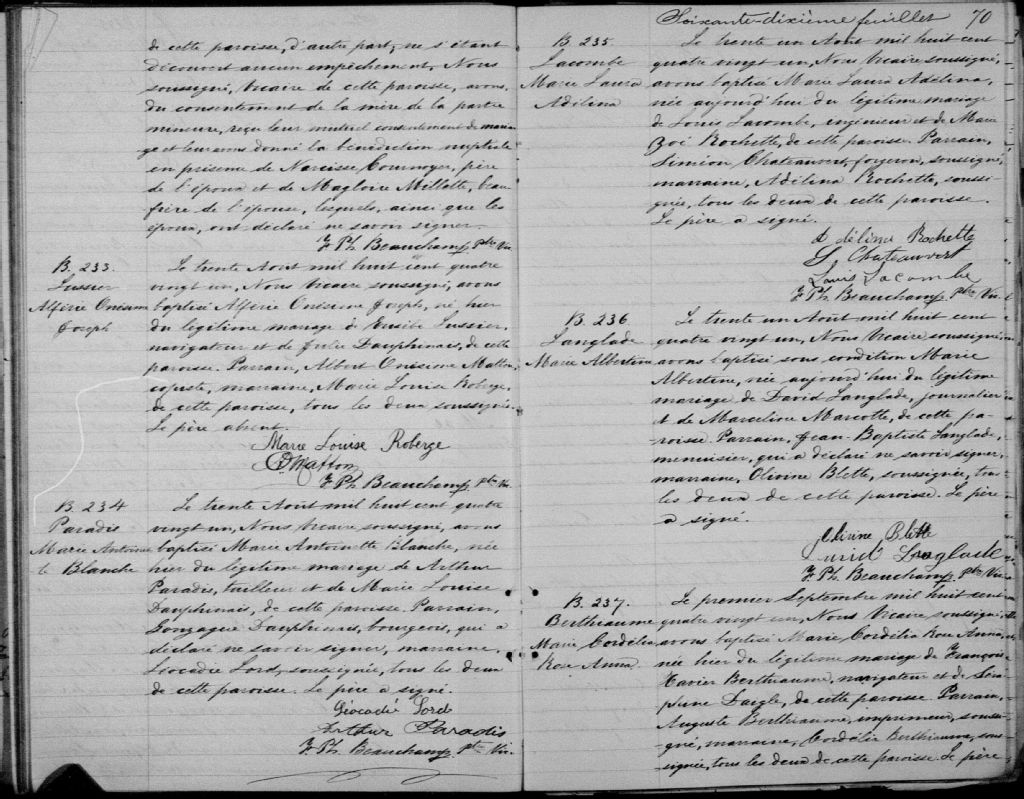 de cette paroisse, d'autre part, ne s'étant
découvert aucun empêchement, Nous
soussigné, Vicaire de cette paroisse, avons,
du consentement de la mère de la partie
mineure, reçu leur mutuel consentement de maria-
ge et leur avons donné la bénédiction nuptiale
en présence de Narcisse Cournoyer, père
de l'époux et de Magloire Millette, beau
frère de l'épouse, lesquels, ainsi que les
époux, ont déclaré ne savoir signer.
J. Ph. Beauchamp. Ptre Vic.
B. 233.
Lussier
Alférie Onésime
Joseph
Le trente Aout mil huit cent quatre
vingt un, Nous Vicaire soussigné, avons
baptisé Alférie Onésime Joseph, né hier
du légitime mariage d'Eusèbe Lussier,
navigateur et de Julie Dauphinais, de cette
paroisse. Parrain, Albert Onésime Matton
, marraine, Marie Louise Roberge,
de cette paroisse, tous les deux soussignés.
Le père absent.
Marie Louise Roberge
Matton
J. Ph. Beauchamp. Ptre Vic.
B. 234
Paradis
Marie Antoinet-
te Blanche
Le trente Aout mil huit cent quatre
vingt un, Nous Vicaire soussigné, avons
baptisé Marie Antoinette Blanche, née
hier du légitime mariage de Arthur
Paradis, tailleur et de Marie Louise
Dauphinais, de cette paroisse. Parrain,
Gonzague Dauphinais, bourgeois, qui a
déclaré ne savoir signer, marraine,
Léocadie Lord, soussignée, tous les deux
de cette paroisse. Le père a signé.
Léocadie Lord
Arthur Paradis
J. Ph. Beauchamp. Ptre Vic.
Soixante-dixième feuillet 70
B. 235.
Lacombe
Marie Laura
Adélina
Le trente un Aout mil huit cent
quatre vingt un, Nous Vicaire soussigné,
avons baptisé Marie Laura Adélina,
née aujourd'hui du légitime mariage
de Louis Lacombe, engénieur et de Marie
Zoé Rochette, de cette paroisse. Parrain,
Siméon Chateauvert, forgeron, soussigné,
marraine, Adélina Rochette, soussi-
gnée, tous les deux de cette paroisse.
Le père a signé.
Adélina Rochette
S Chateauvert
Louis Lacombe
J. Ph. Beauchamp. Ptre Vic.
B. 236
Langlade
Marie Albertine
Le trente un Aout mil huit cent
quatre vingt un, Nous Vicaire soussigné,
avons baptisé sous condition Marie
Albertine, née aujourd'hui du légitime
mariage de David Langlade, journalier
et de Marceline Marcotte, de cette pa-
roisse. Parrain, Jean-Baptiste Langlade,
menuisier, qui a déclaré ne savoir signer,
marraine, Olivine Blette, soussignée, tous
les deux de cette paroisse. Le père
a signé.
Olivine Blette
Langlade
J. Ph. Beauchamp. Ptre Vic.
B. 237.
Berthiaume
Marie Cordélia
Rose Anna
Le premier Septembre mil huit cent
quatre vingt un, Nous Vicaire soussigné,
avons baptisé Marie Cordélia Rose Anna,
née hier du légitime mariage de François
Xavier Berthiaume, navigateur et de Séra-
phine Daigle, de cette paroisse. Parrain,
Auguste Berthiaume, imprimeur, soussi-
gné, marraine, Cordélia Berthiaume, sous-
signée, tous les deux de cette paroisse. Le père